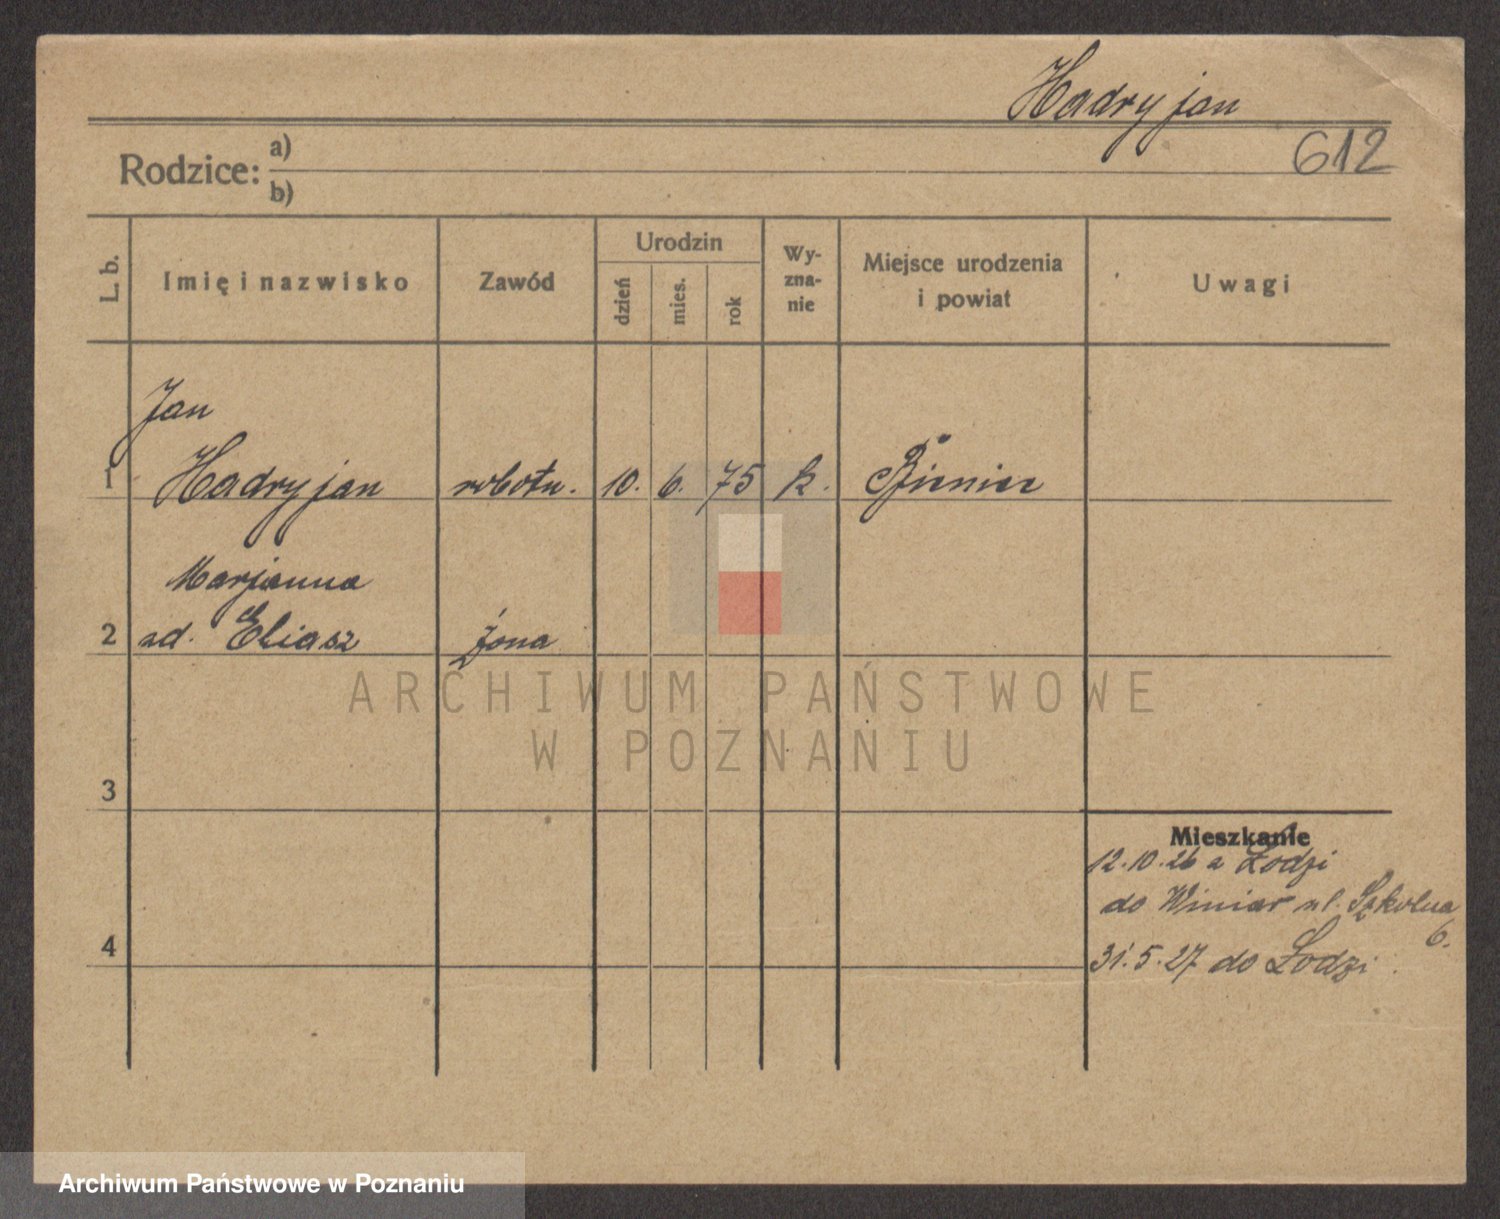 Hadryjan
612
Rodzice: a)
b)
L. b.
Imię i nazwisko
Zawód
Urodzin
dzień
mies.
rok
Wy-
zna-
nie
Miejsce urodzenia
i powiat
Uwagi
Jan
1 Hadryjan robotn. 10. 6. 75 k.
Marjanna
2 zd. Eliasz żona
ARCHIWUM PAŃSTWOWE
W POZNANIU
3
Mieszkanie
12.10.26 z Łodzi
do Winiar ul. Szkolna
6.
4
31.5.27 do Łodzi.
Archiwum Państwowe w Poznaniu